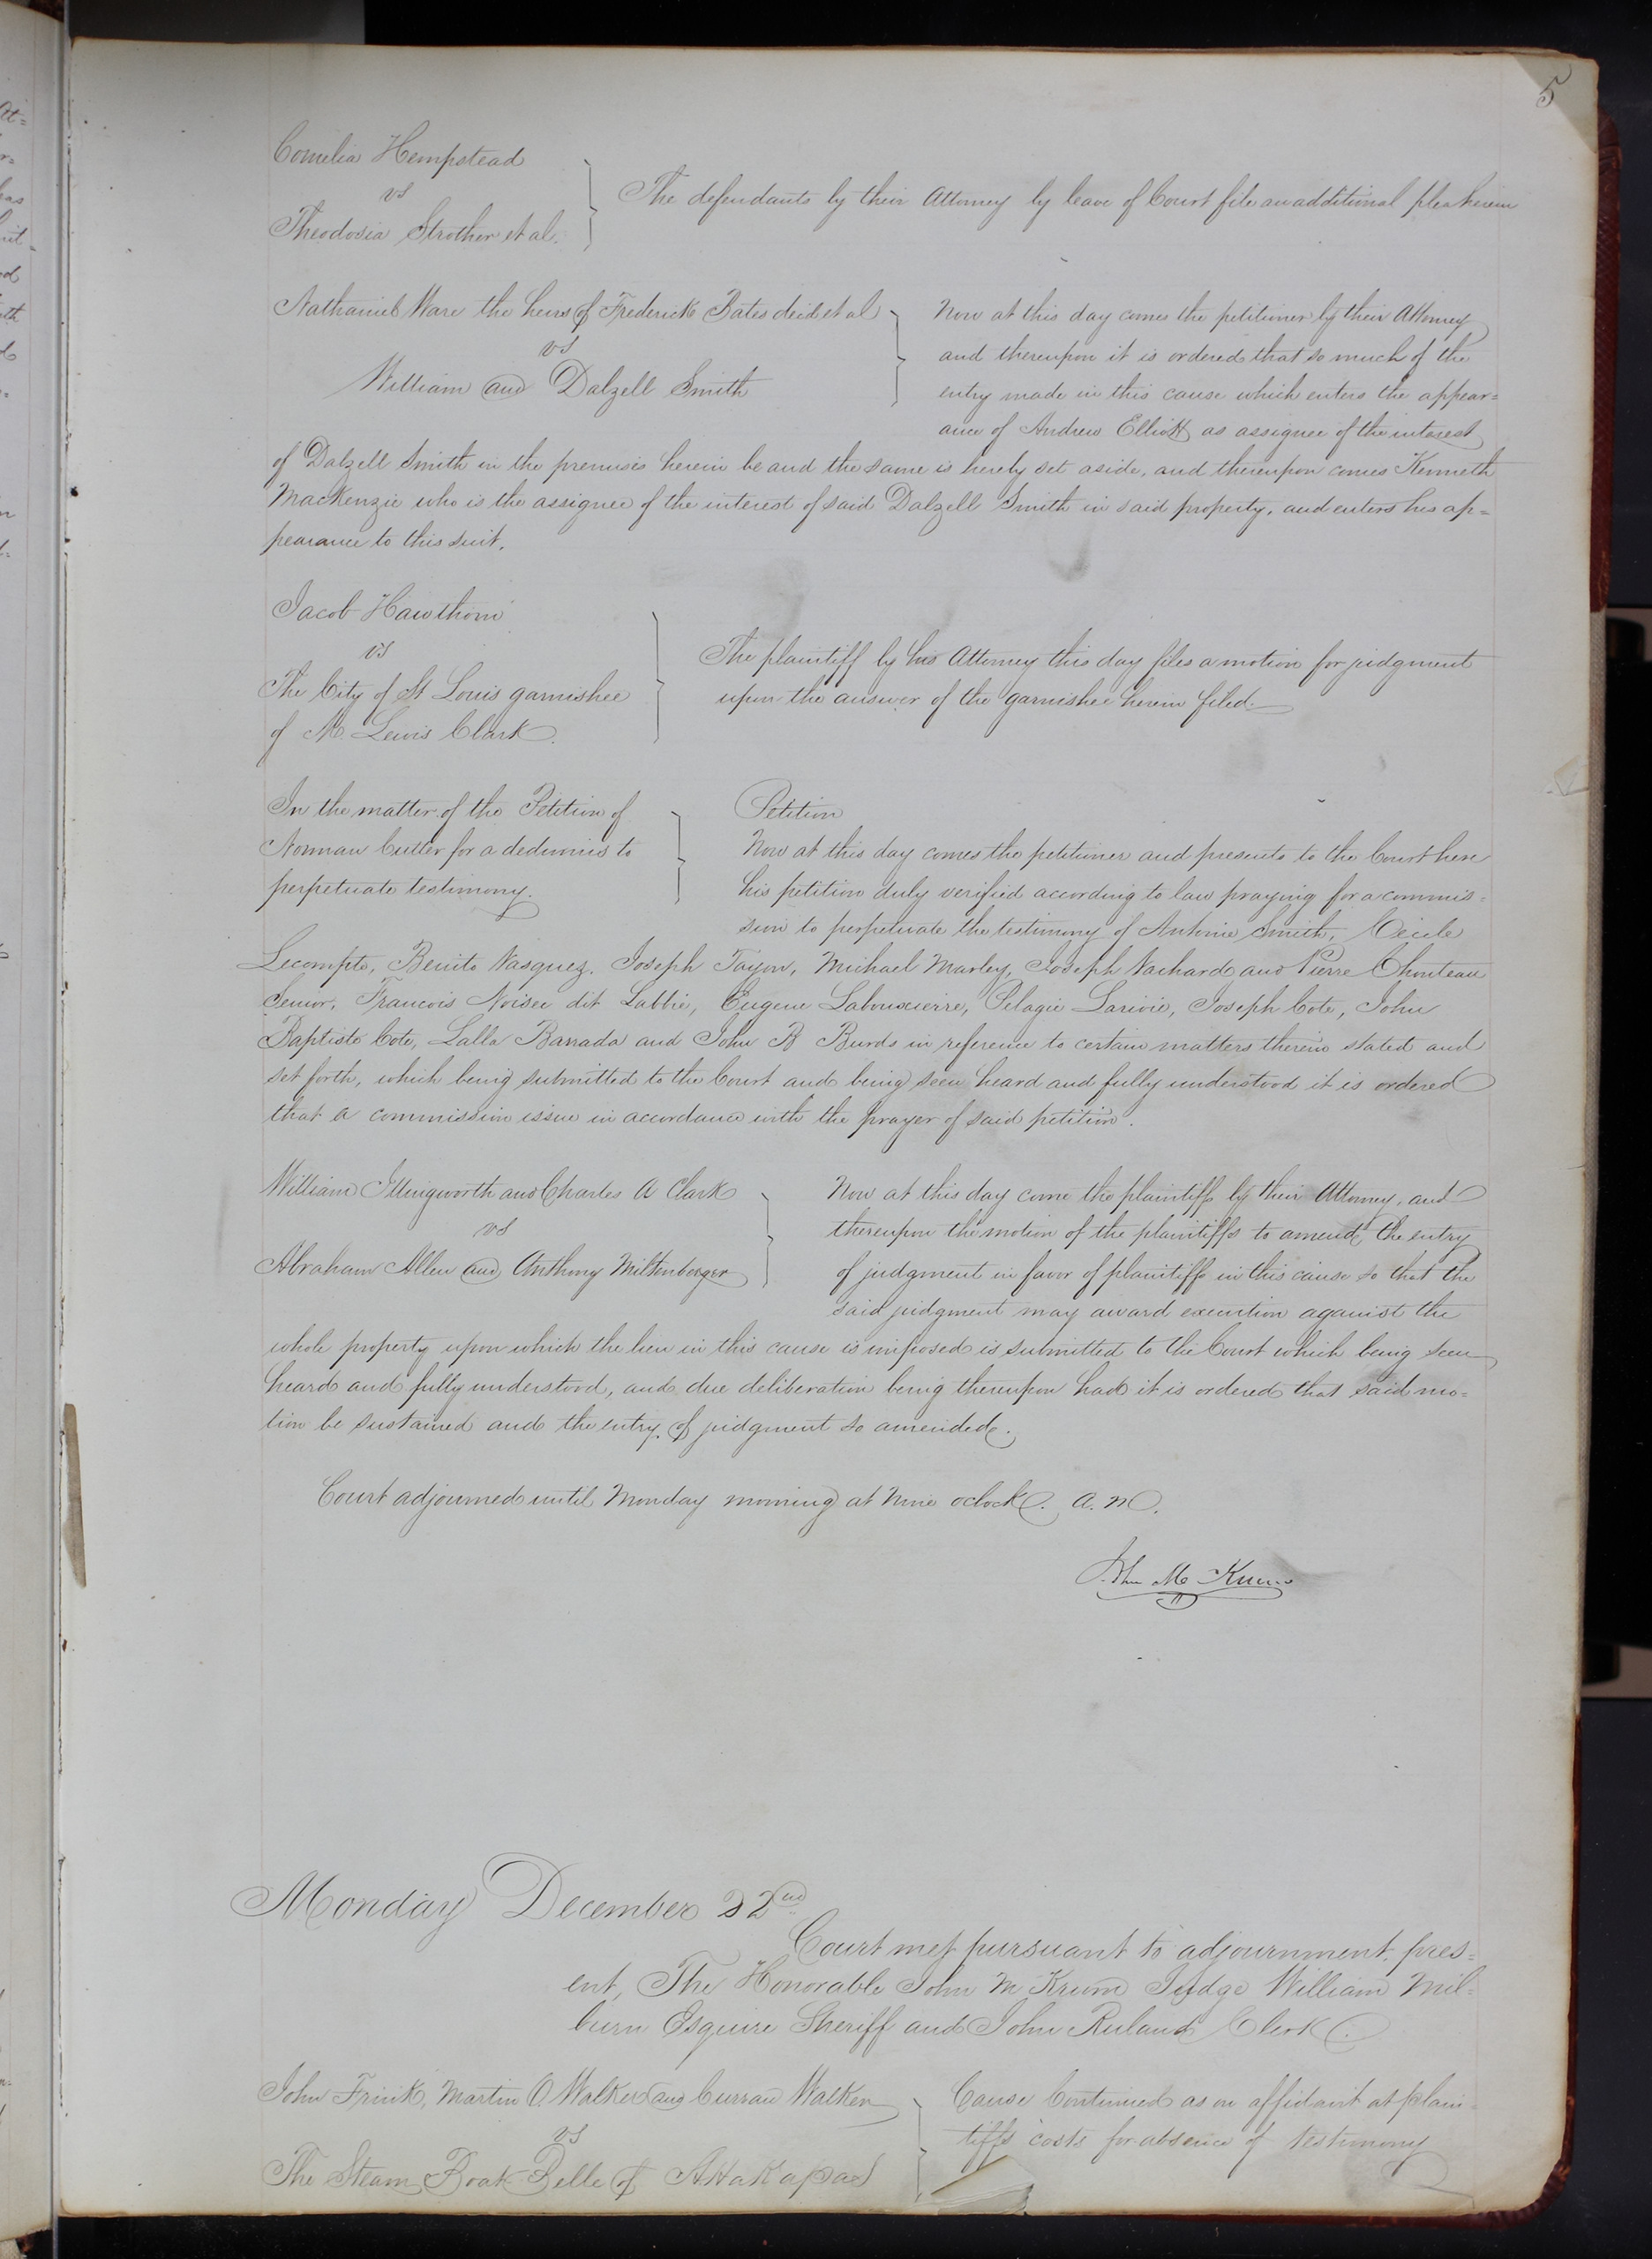 5
Cornelia Hempstead
vs
Theodosia Strother et al.
The defendants by their Attorney by leave of Court file an additional plea herein
Nathaniel Ware the heirs of Frederick Bates decd et al
vs
William and Dalzell Smith
Now at this day comes the petitioner by their Attorney
and thereupon it is ordered that so much of the
entry made in this cause which enters the appear=
ance of Andrew Elliott as assignee of the interest
of Dalzell Smith in the premises herein be and the same is hereby set aside, and thereupon comes Kenneth
MacKenzie who is the assignee of the interest of said Dalzell Smith in said property, and enters his ap=
pearance to this suit.
Jacob Hawthorn
vs
The City of St Louis garnishee
of M. Lewis Clark.
The plaintiff by his Attorney this day files a motion for judgment
upon the answer of the garnishee herein filed.
In the matter of the Petition of
Norman Cutter for a dedimus to
perpetuate testimony.
Petition
Now at this day comes the petitioner and presents to the Court here
his petition duly verified according to law praying for a commis=
sion to perpetuate the testimony of Antoine Smith, Cecile
Lecompte, Benito Vasquez, Joseph Tayon, Michael Marley, Joseph Vachard and Pierre Chouteau
Senior, Francois Noisee dit Labbie, Eugene Pelagie Larivie, Joseph Cote, John
Baptiste Cote, Lalla Barrada and John B Burds in reference to certain matters therein stated and
set forth, which being submitted to the Court and being seen heard and fully understood it is ordered
that a commission issue in accordance with the prayer of said petition.
William Illingworth and Charles A Clark
vs
Abraham Allen and Anthony Miltenberger
Now at this day come the plaintiffs by their Attorney, and
thereupon the motion of the plaintiffs to amend the entry
of judgment in favor of plaintiffs in this cause so that the
said judgment may award execution against the
whole property upon which the lien in this cause is imposed is submitted to the Court which being seen
heard and fully understood, and due deliberation being thereupon had it is ordered that said mo=
tion be sustained and the entry of judgment so amended.
Court adjourned until Monday morning at Nine oclock. A. M.
John M Krum
Monday December 22nd
Court met pursuant to adjournment, pres=
ent, The Honorable John M Krum Judge William Mil=
burn Esquire Sheriff and John Ruland Clerk.
John Frink, Martin O. Walker and Curran Walker
vs
The Steam Boat Belle of Attakapas
Cause Continued as on affidavit at plain=
tiffs costs for absence of testimony